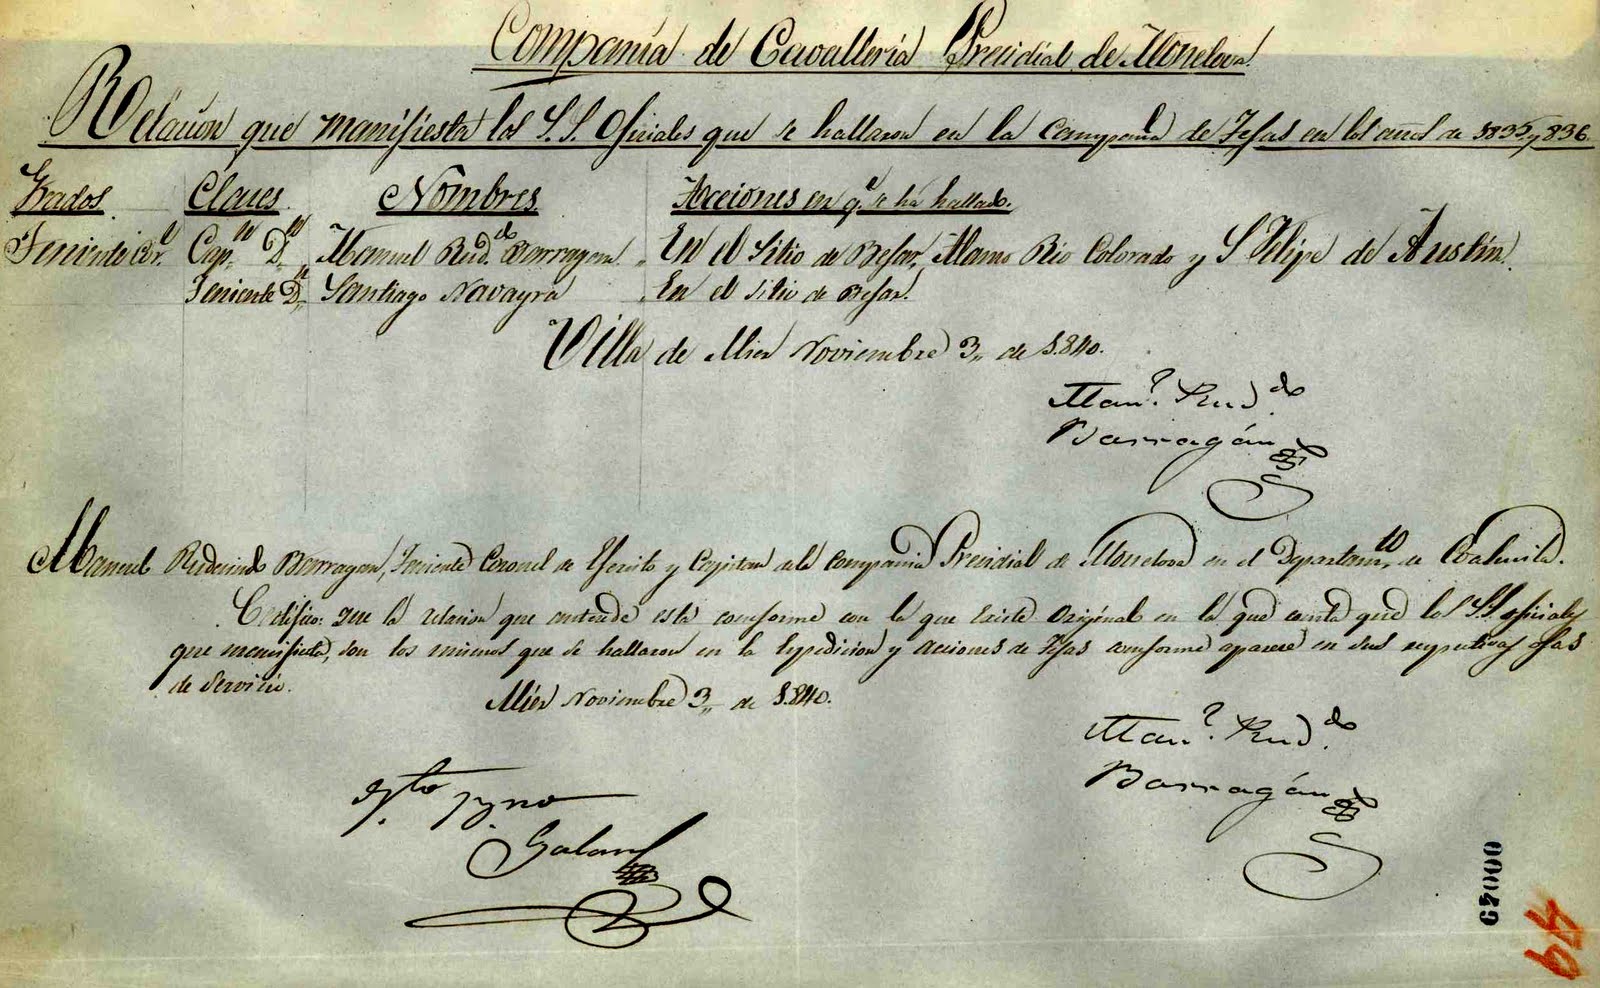 Compañia de Cavalleria Precidial de Monclova.
Relacion que manifiesta los S.S. Oficiales que se hallaron en la Campaña de Tejas en los años de 1835 y 836.
Grados. Clases. Nombres. Acciones en q.e se ha hallado.
Teniente Cor.l Cap.n D.n Manuel Rud.do Barragan. En el Sitio de Bejar, Alamo Rio Colorado y S. Felipe de Austin.
Teniente D.n Santiago Navayra En el sitio de Bejar.
Villa de Mier Noviembre 3,, de 1.840.
Man.l Rud.do
Barragán
Manuel Rudecindo Barragan, Teniente Coronel de Ejercito y Capitan de la Compañia Precidial de Monclova en el Departam.to de Coahuila.
Certifico: que la relacion que antecede está comforme con la que existe original en la que consta que los S.S. oficiales
que manifiesta, son los mismos que se hallaron en la Expedicion y acciones de Tejas comforme aparece en sus respectivas ojas
de Servicio.
Mier Noviembre 3,, de 1.840.
Man.l Rud.do
Barragán
Galan
00049
49